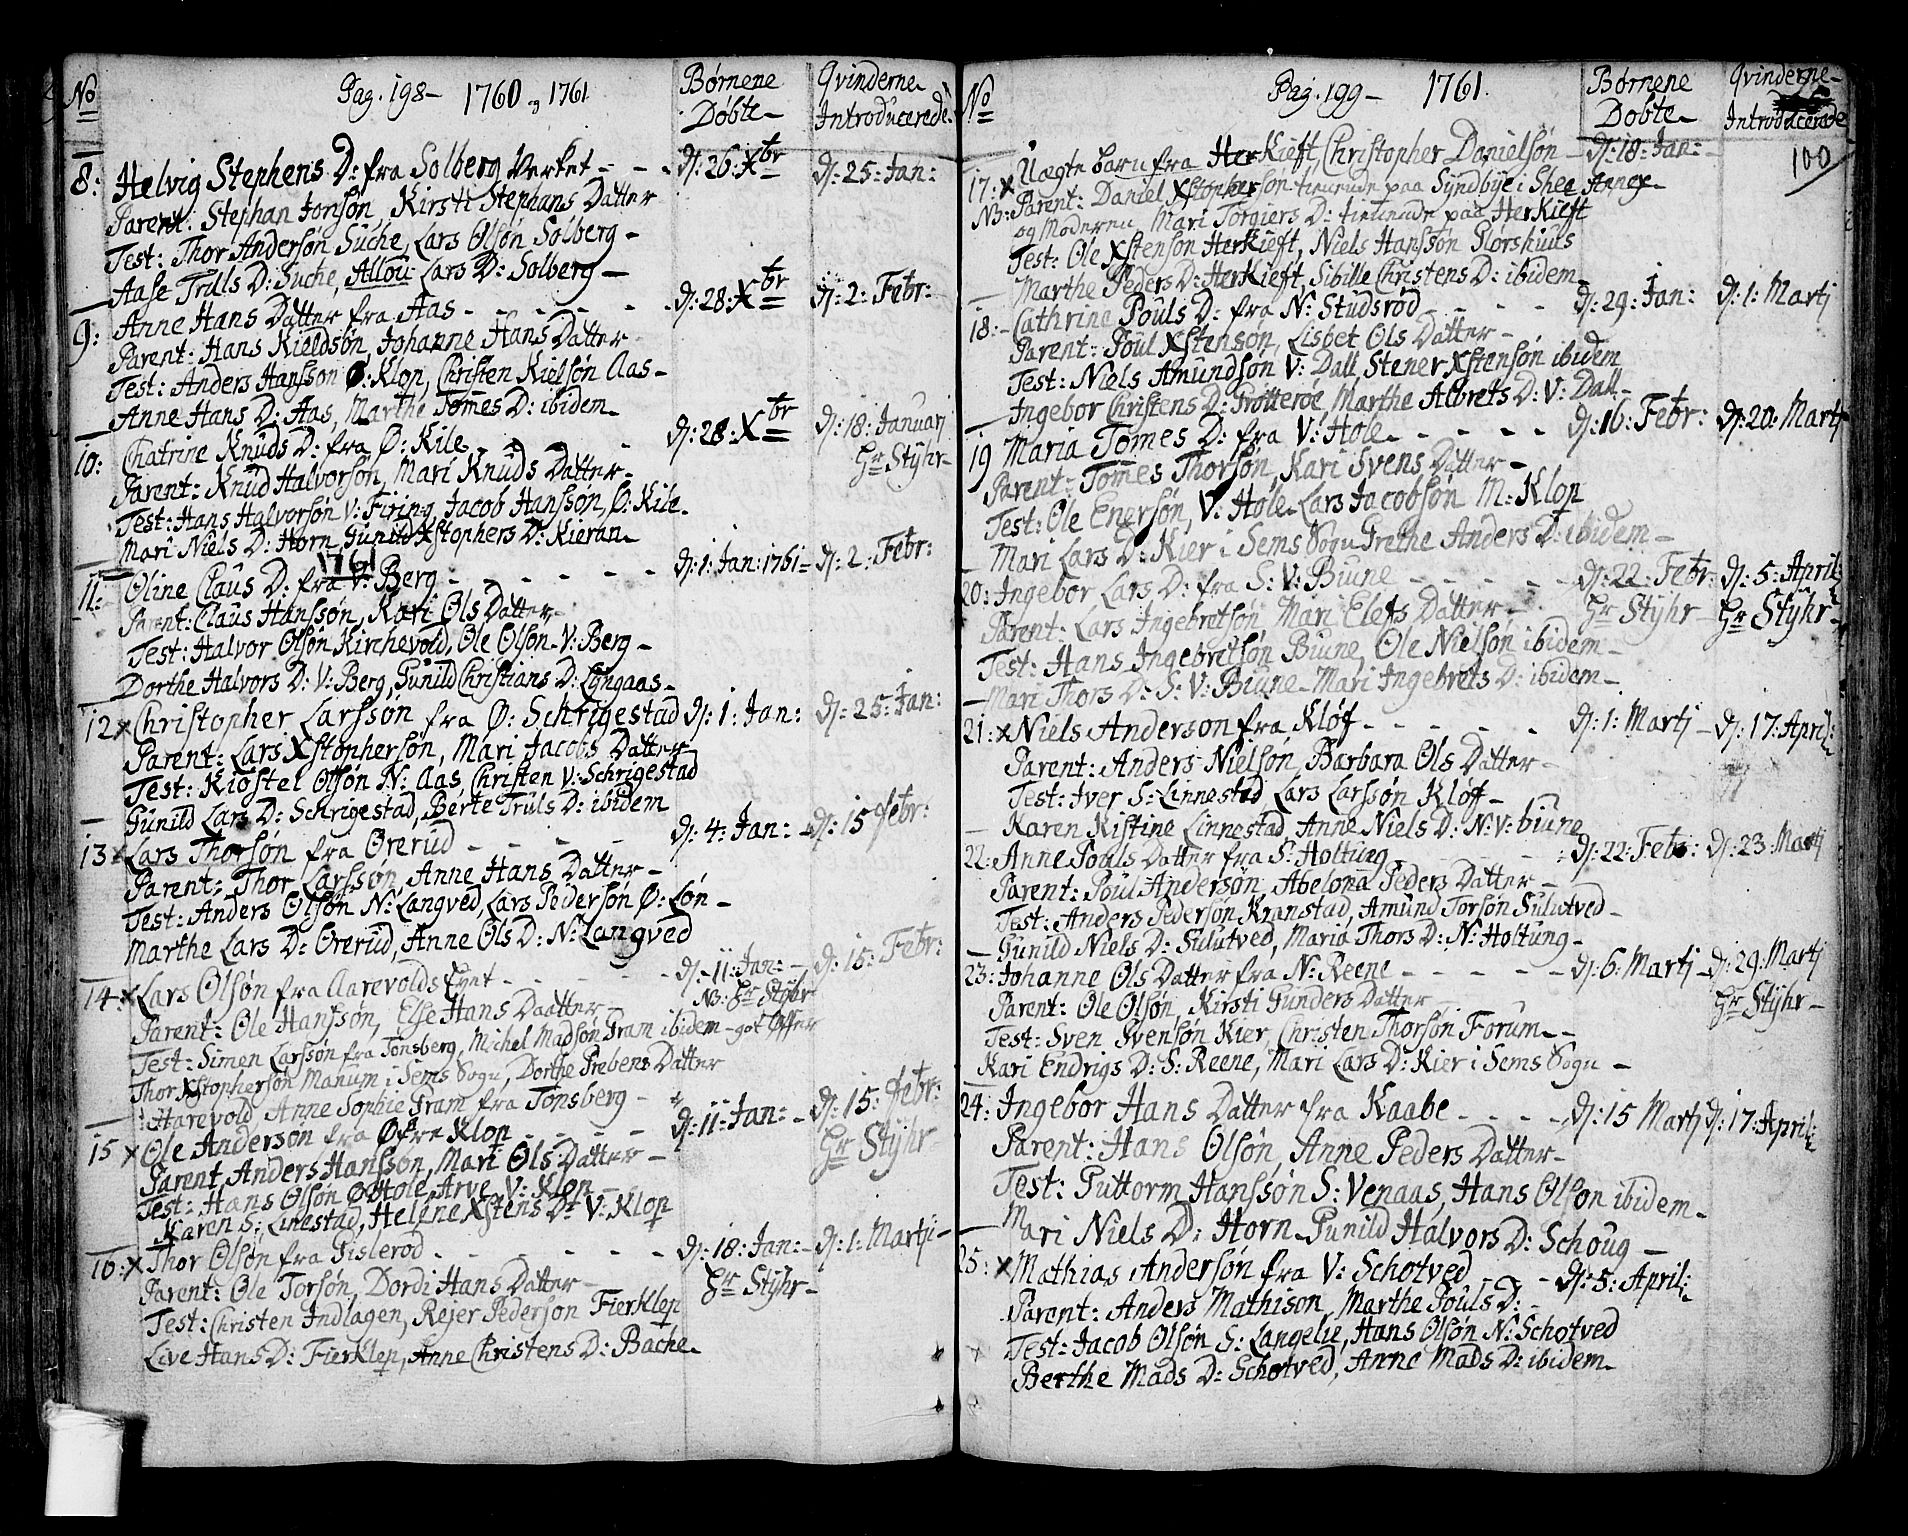 No Pag. 198 - 1760 og 1761 Børnene Døbte - Qvinderne Introducerede.
8: Helvig Stephens D: fra Solberg Verket - - - d: 26: Xbr d: 25: Jan:
Parent: Stephan Jonsøn, Kirsti Stephans Datter
Test: Thor Andersøn Suche, Lars Olsøn Solberg -
Aase Trulls D: Suche, Lars D: Solberg -
9: Anne Hans Datter fra Aas - - - - d: 28: Xbr d: 2: Febr:
Parent: Hans Kieldsøn, Johanne Hans Datter
Test: Anders Hanssøn Ø: Klop, Christen Kielsøn Aas -
Anne Hans D: Aas, Marthe Tomes D: ibidem -
10: Chatrine Knuds D: fra Ø: Kile - - - d: 28: Xbr d: 18: Januarj
Hr Styhr -
Parent: Knud Halvorsøn, Mari Knuds Datter -
Test: Hans Halvorsøn V: Firing, Jacob Hanssøn, Ø: Kile -
Mari Niels D: Horn, Gunild Xstophers D: Kieran -
1761
11: Oline Claus D: fra V: Berg - - - - - d: 1: Jan: 1761 - d: 2: Febr:
Parent: Claus Hanssøn, Kari Ols Datter -
Test: Halvor Olsøn Kirchevold, Ole Olsøn V: Berg -
Dorthe Halvors D: V: Berg, Gunild Christians D: Lyngaas -
12 x Christopher Larssøn fra Ø: Schrigestad d: 1: Jan: d: 25: Jan:
Parent: Lars Xstophersøn, Mari Jacobs Datter
Test: Kiøstel Olsøn N: Aas, Christen V: Schrigestad
Gunild Lars D: Schrigestad, Berte Truls D: ibidem
13 x Lars Thorsøn fra Ørerud - - - - d: 4: Jan: - d: 15 Febr:
Parent: Thor Larssøn, Anne Hans Datter -
Test: Anders Olsøn N: Langved, Lars Pedersøn Ø: Løn -
Marthe Lars D: Ørerud, Anne Ols D: N: Langved
14 x Lars Olsøn fra Aarevolds Eyet - - - - d: 11: Jan: - d: 15: Febr:
NB: Hr Styhr
Parent: Ole Hanssøn, Else Hans Daatter - got Offer
Test: Simen Larssøn fra Tønsberg, Michel Madsøn Gram ibidem -
Thor Xstophersøn Manum i Sems Sogn, Dorthe Prebens Datter
Harevold, Anne Sophie Gram fra Tønsberg -
15 x Ole Andersøn fra Øfre Klop - - - - d: 11: Jan: - d: 15: Febr:
Hr Styhr -
Parent Anders Hanssøn, Mari Ols Datter -
Test: Hans Olsøn Ø: Hole, Arve V: Klop -
Karen S: Linestad, Helene Xstens Dr V: Klop
16: x Thor Olsøn fra Gislerød - - - - - d: 18: Jan: - d: 1: Martji -
Hr Styhr -
Parent: Ole Torsøn, Dordi Hans Datter -
Test: Christen Indlagen, Rejer Pedersøn Fierklep
Live Hans D: Fierklep, Anne Christens D: Bache -
No Pag. 199 - 1761. Børnene Døbte - Qvinderne - Introducerede
100
17: x Uægte barn fra Herkieft, Christopher Danielsøn - d: 18: Jan: -
NB: Parent: Daniel Xstophersøn tienende paa Syndbye i Shee Annex -
og Moderen Mari Torgiers D: tienende paa Herkieft
Test: Ole Xstensøn Herkieft, Niels Hanssøn
Marthe Peders D: Herkieft, Sibille Christens D: ibidem -
18: - Cathrine Pouls D: fra N: Studsrød - - - - d: 29: Jan: d: 1: Martj
Parent: Poul Xstensøn, Lisbet Ols Datter -
Test: Niels Amundsøn V: Dall, Stener Xstensøn ibidem
Ingebor Christens D: Trotterøe, Marthe Albrets D: V: Dall -
19 Maria Tomes D: fra V: Hole - - - - - d: 16: Febr: d: 20: Martj
Parent: Tomes Thorsøn, Kari Svens Datter -
Test: Ole Enersøn, V: Hole - Lars Jacobsøn M: Klop
Mari Lars D: Kier i Sems Sogn Grethe Anders D: ibidem -
20: Ingebor Lars D: fra S: V: Biune - - - - - d: 22: Febr: d: 5: April:
Hr Styhr - Hr Styhr -
Parent: Lars Ingebretsøn Mari Elefs Datter -
Test: Hans Ingebretsøn Biune, Ole Nielsøn ibidem -
Mari Thors D: S: V: Biune - Mari Ingebrets D: ibidem -
21: x Niels Andersøn fra Kløf - - - - - d: 1: Martj - d: 17: April:
Parent: Anders Nielsøn, Barbara Ols Datter -
Test: Iver S: Linnestad, Lars Larssøn Kløf -
Karen Kistine Linnestad, Anne Niels D: N: V: biune
22: Anne Pouls Datter fra S: Holtung - - - - d: 22: Febr: d: 23: Martj
Parent: Poul Andersøn, Abelona Peders Datter -
Test: Anders Pedersøn Kranstad, Amund Torsøn Sulutved -
Gunild Niels D: Sulutved, Maria Thors D: N: Holtung -
23: Johanne Ols Datter fra N: Reene - - - - - d: 6: Martj - d: 29: Martj
Hr Styhr -
Parent: Ole Olsøn, Kirsti Gunders Datter -
Test: Sven Svensøn Kier, Christen Thorsøn Forum - -
Kari Endrigs D: S: Reene, Mari Lars D: Kier i Sems Sogn -
24: Ingebor Hans Datter fra Kaabe - - - - d: 15 Martj d: 17: April:
Parent: Hans Olsøn, Anne Peders Datter -
Test: Guttorm Hanssøn S: Venaas, Hans Olsøn ibidem -
Mari Niels D: Horn - Gunild Halvors D: Schoug -
25: x Mathias Andersøn fra V: Schotved - - - d: 5: April:
Parent: Anders Mathisøn, Marthe Pouls D: -
Test: Jacob Olsøn S: Langelie, Hans Olsøn N: Schotved
Berthe Mads D: Schotved, Anne Mads D: ibidem -